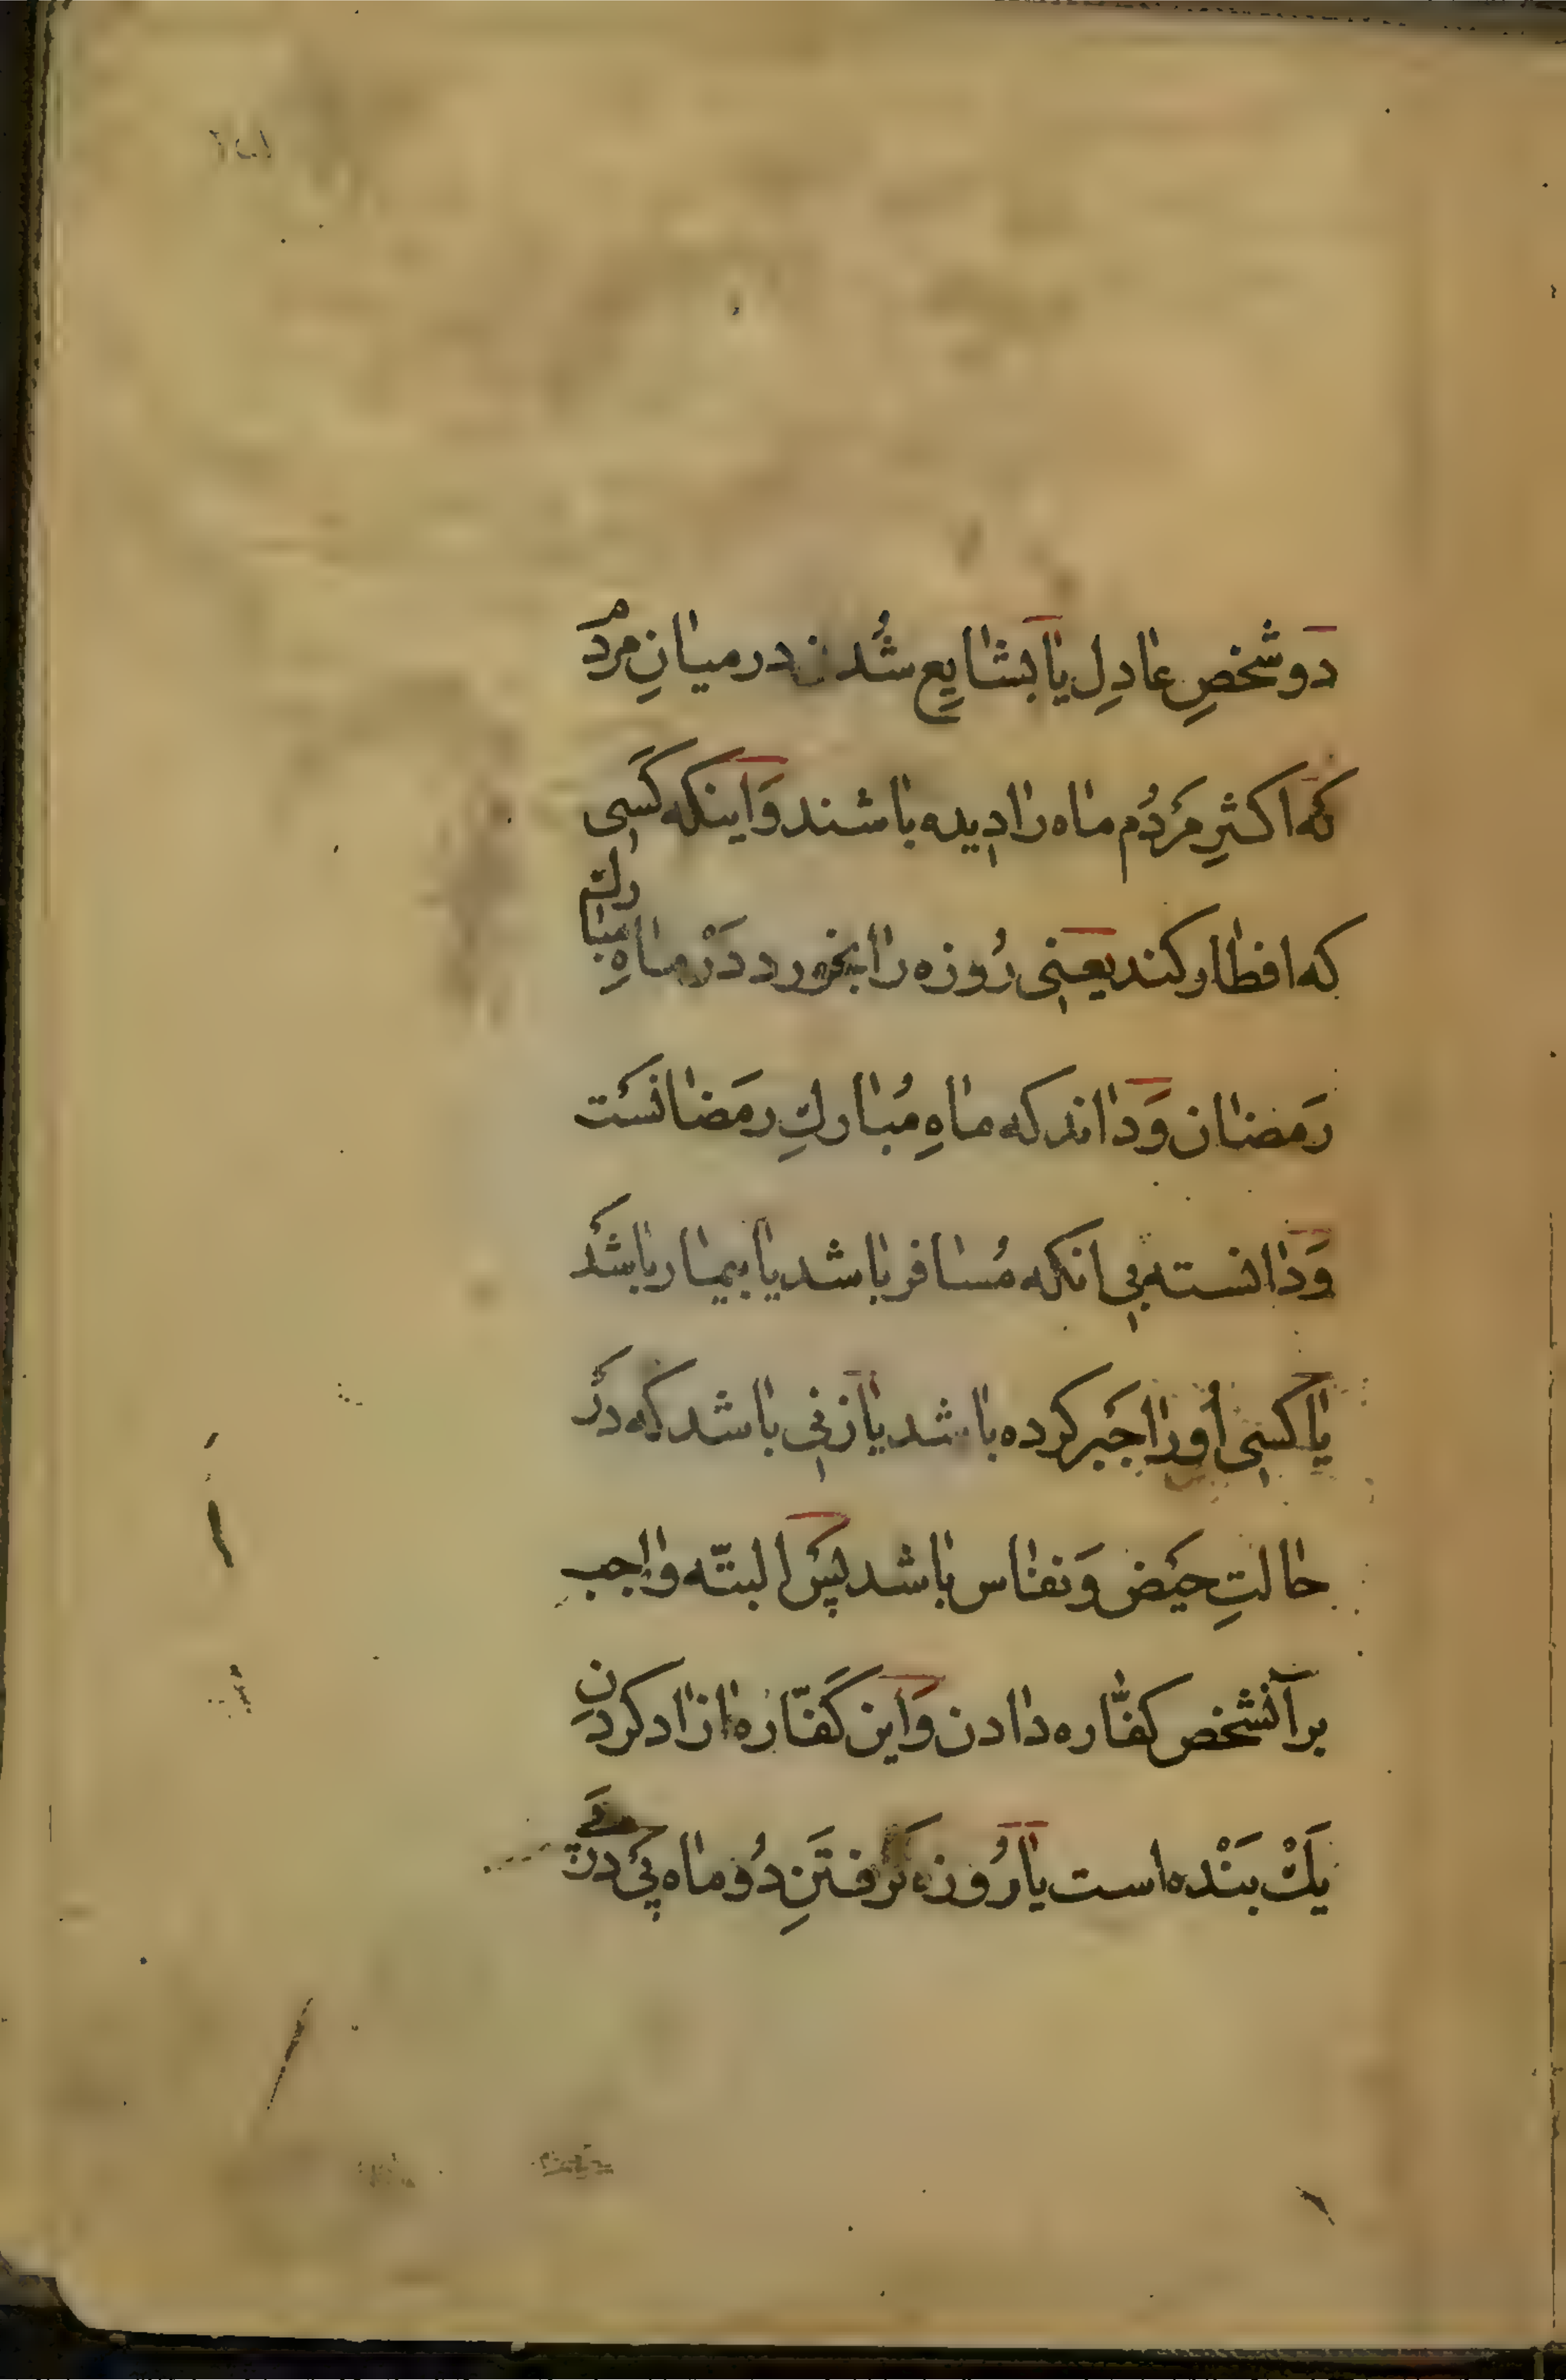 دو شخصِ عادلِ یا بشایِع شُدن در میانِ مردُم
کَه اکثرِ مَردُم ماه را دیده باشند وَ اینکه کَسی
که افطار کند یعنی رُوزه را بخورد دَرْ ماهِ مبارك
رَمَضان وَ داند که ماهِ مُبارکِ رمَضانَست
وَ دانسته بی انکه مُسافر باشد یا بیمار باشَد
یا کسی اُورا جَبر کرده باشد یا زنی باشد که دَر
حالتِ حَیَض وَ نفاس باشد پَس البتّه واجب
بر آنشخص کفّاره دادن وَ این کَفّاره ازاد کردنِ
یَكْ بَنْده است یا رُوزه گرفتَنِ دُو ماه پَی در پَی